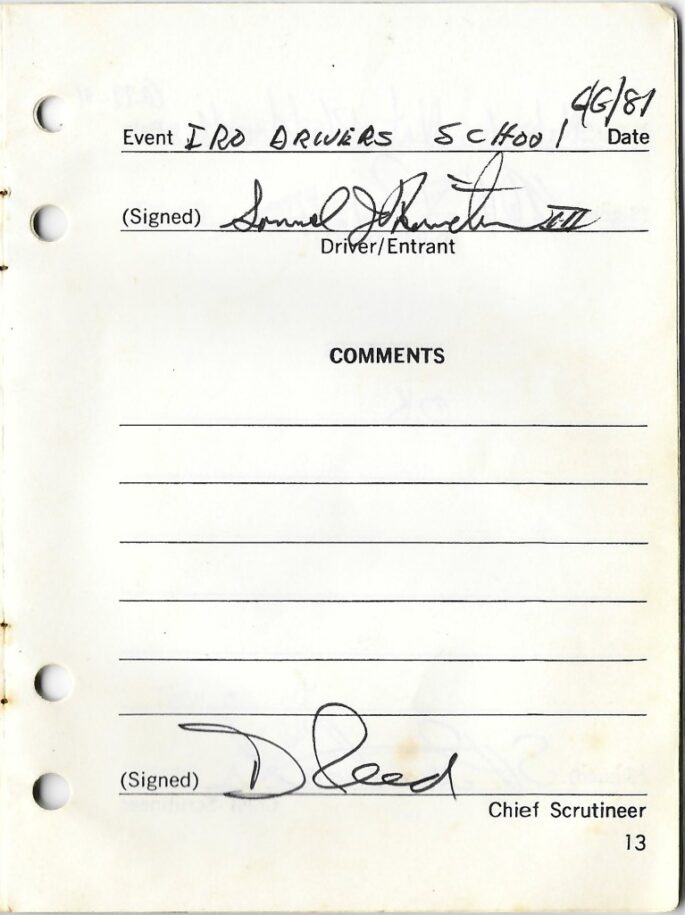 6/6/81
Event IRO DRIVERS SCHOOL Date
(Signed) Samuel J III
Driver/Entrant
COMMENTS
(Signed) D Reed
Chief Scrutineer
13